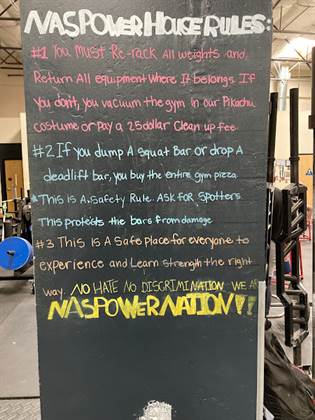 NASPOWERHOUSE RULES:
#1 You Must Re-rack All weights and
Return All equipment where It belongs. If
you don't, you vacuum the gym in our Pikachu
costume or Pay a 25dollar Clean up fee
#2 If you dump A squat Bar or drop A
deadlift bar, you buy the entire gym pizza
*This is A Safety Rule. Ask for Spotters
This protects the bars from damage
#3 This Is A Safe place for everyone to
experience and Learn strength the right
way. NO HATE NO DISCRIMINATION WE ARE
NASPOWERNATION!!